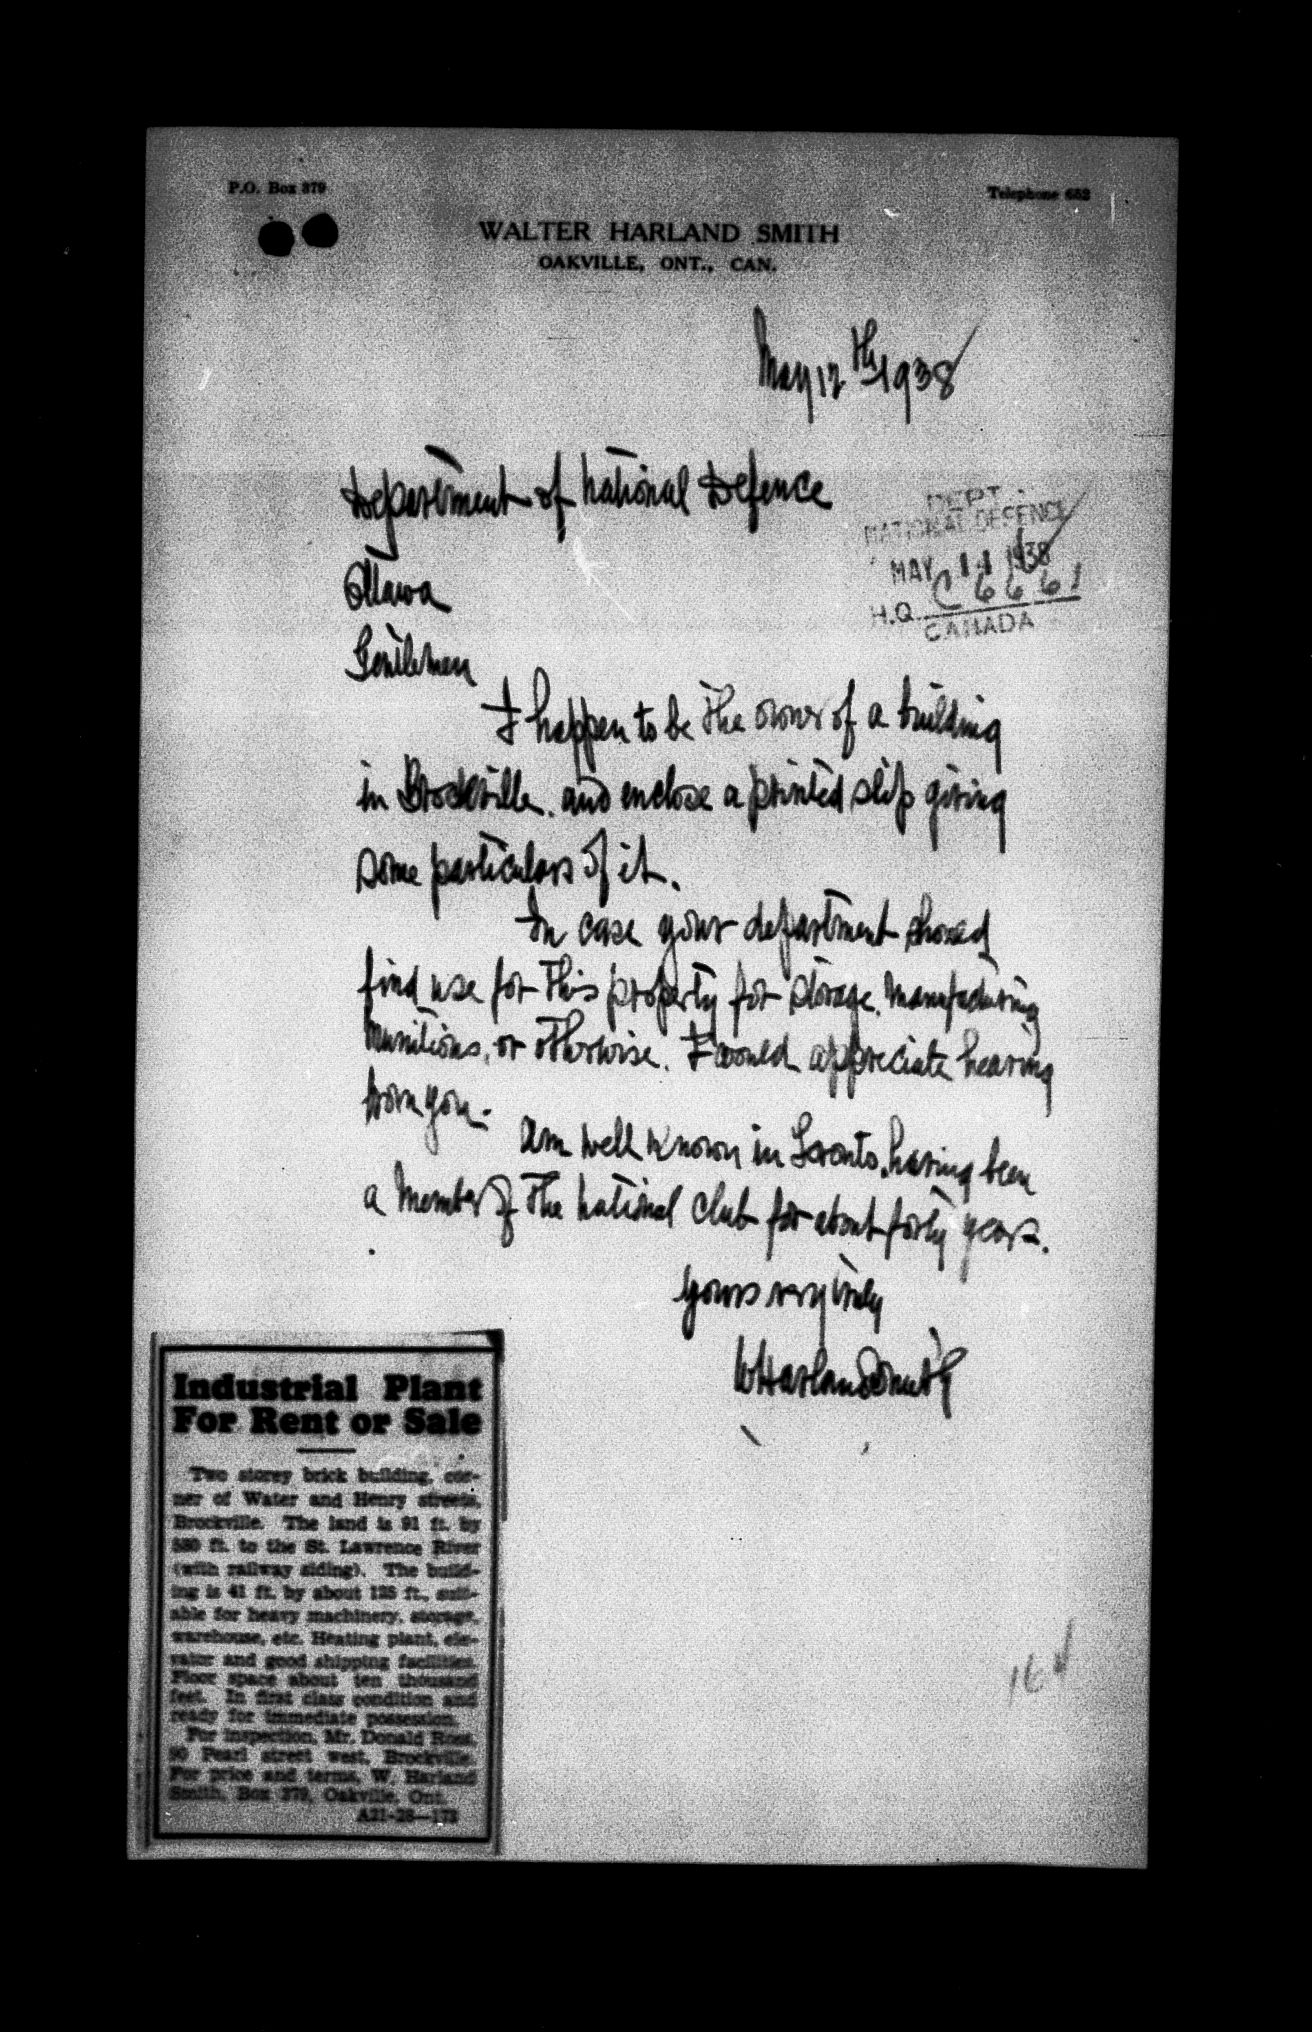 P.O. Box 379
Telephone 652
WALTER HARLAND SMITH
OAKVILLE, ONT., CAN.
May 12th 1938
Department of National Defence
DEPT.
NATIONAL DEFENCE
MAY 14 1938
H.Q. C 6661
CANADA
Ottawa
Gentlemen
I happen to be the owner of a building
in Brockville, and enclose a printed slip giving
some particulars of it.
In case your department should
find use for this property for storage, manufacturing
munitions, or otherwise, I would appreciate hearing
from you.
Am well known in Toronto, having been
a member of the National Club for about forty years.
Yours very truly
W Harland Smith
Industrial Plant
For Rent or Sale
Two storey brick building, cor-
ner of Water and Henry streets,
Brockville. The land is 91 ft. by
ft. to the St. Lawrence River
(with railway siding). The build-
ing is 41 ft. by about 125 ft., suit-
able for heavy machinery, storage,
warehouse, etc. Heating plant, ele-
vator and good shipping facilities.
Floor space about ten thousand
feet. In first class condition and
ready for immediate possession.
For inspection, Mr. Donald Ross,
Pearl street west, Brockville.
For price and terms, W. Harland
Smith, Box 379, Oakville, Ont.
A21-28—173